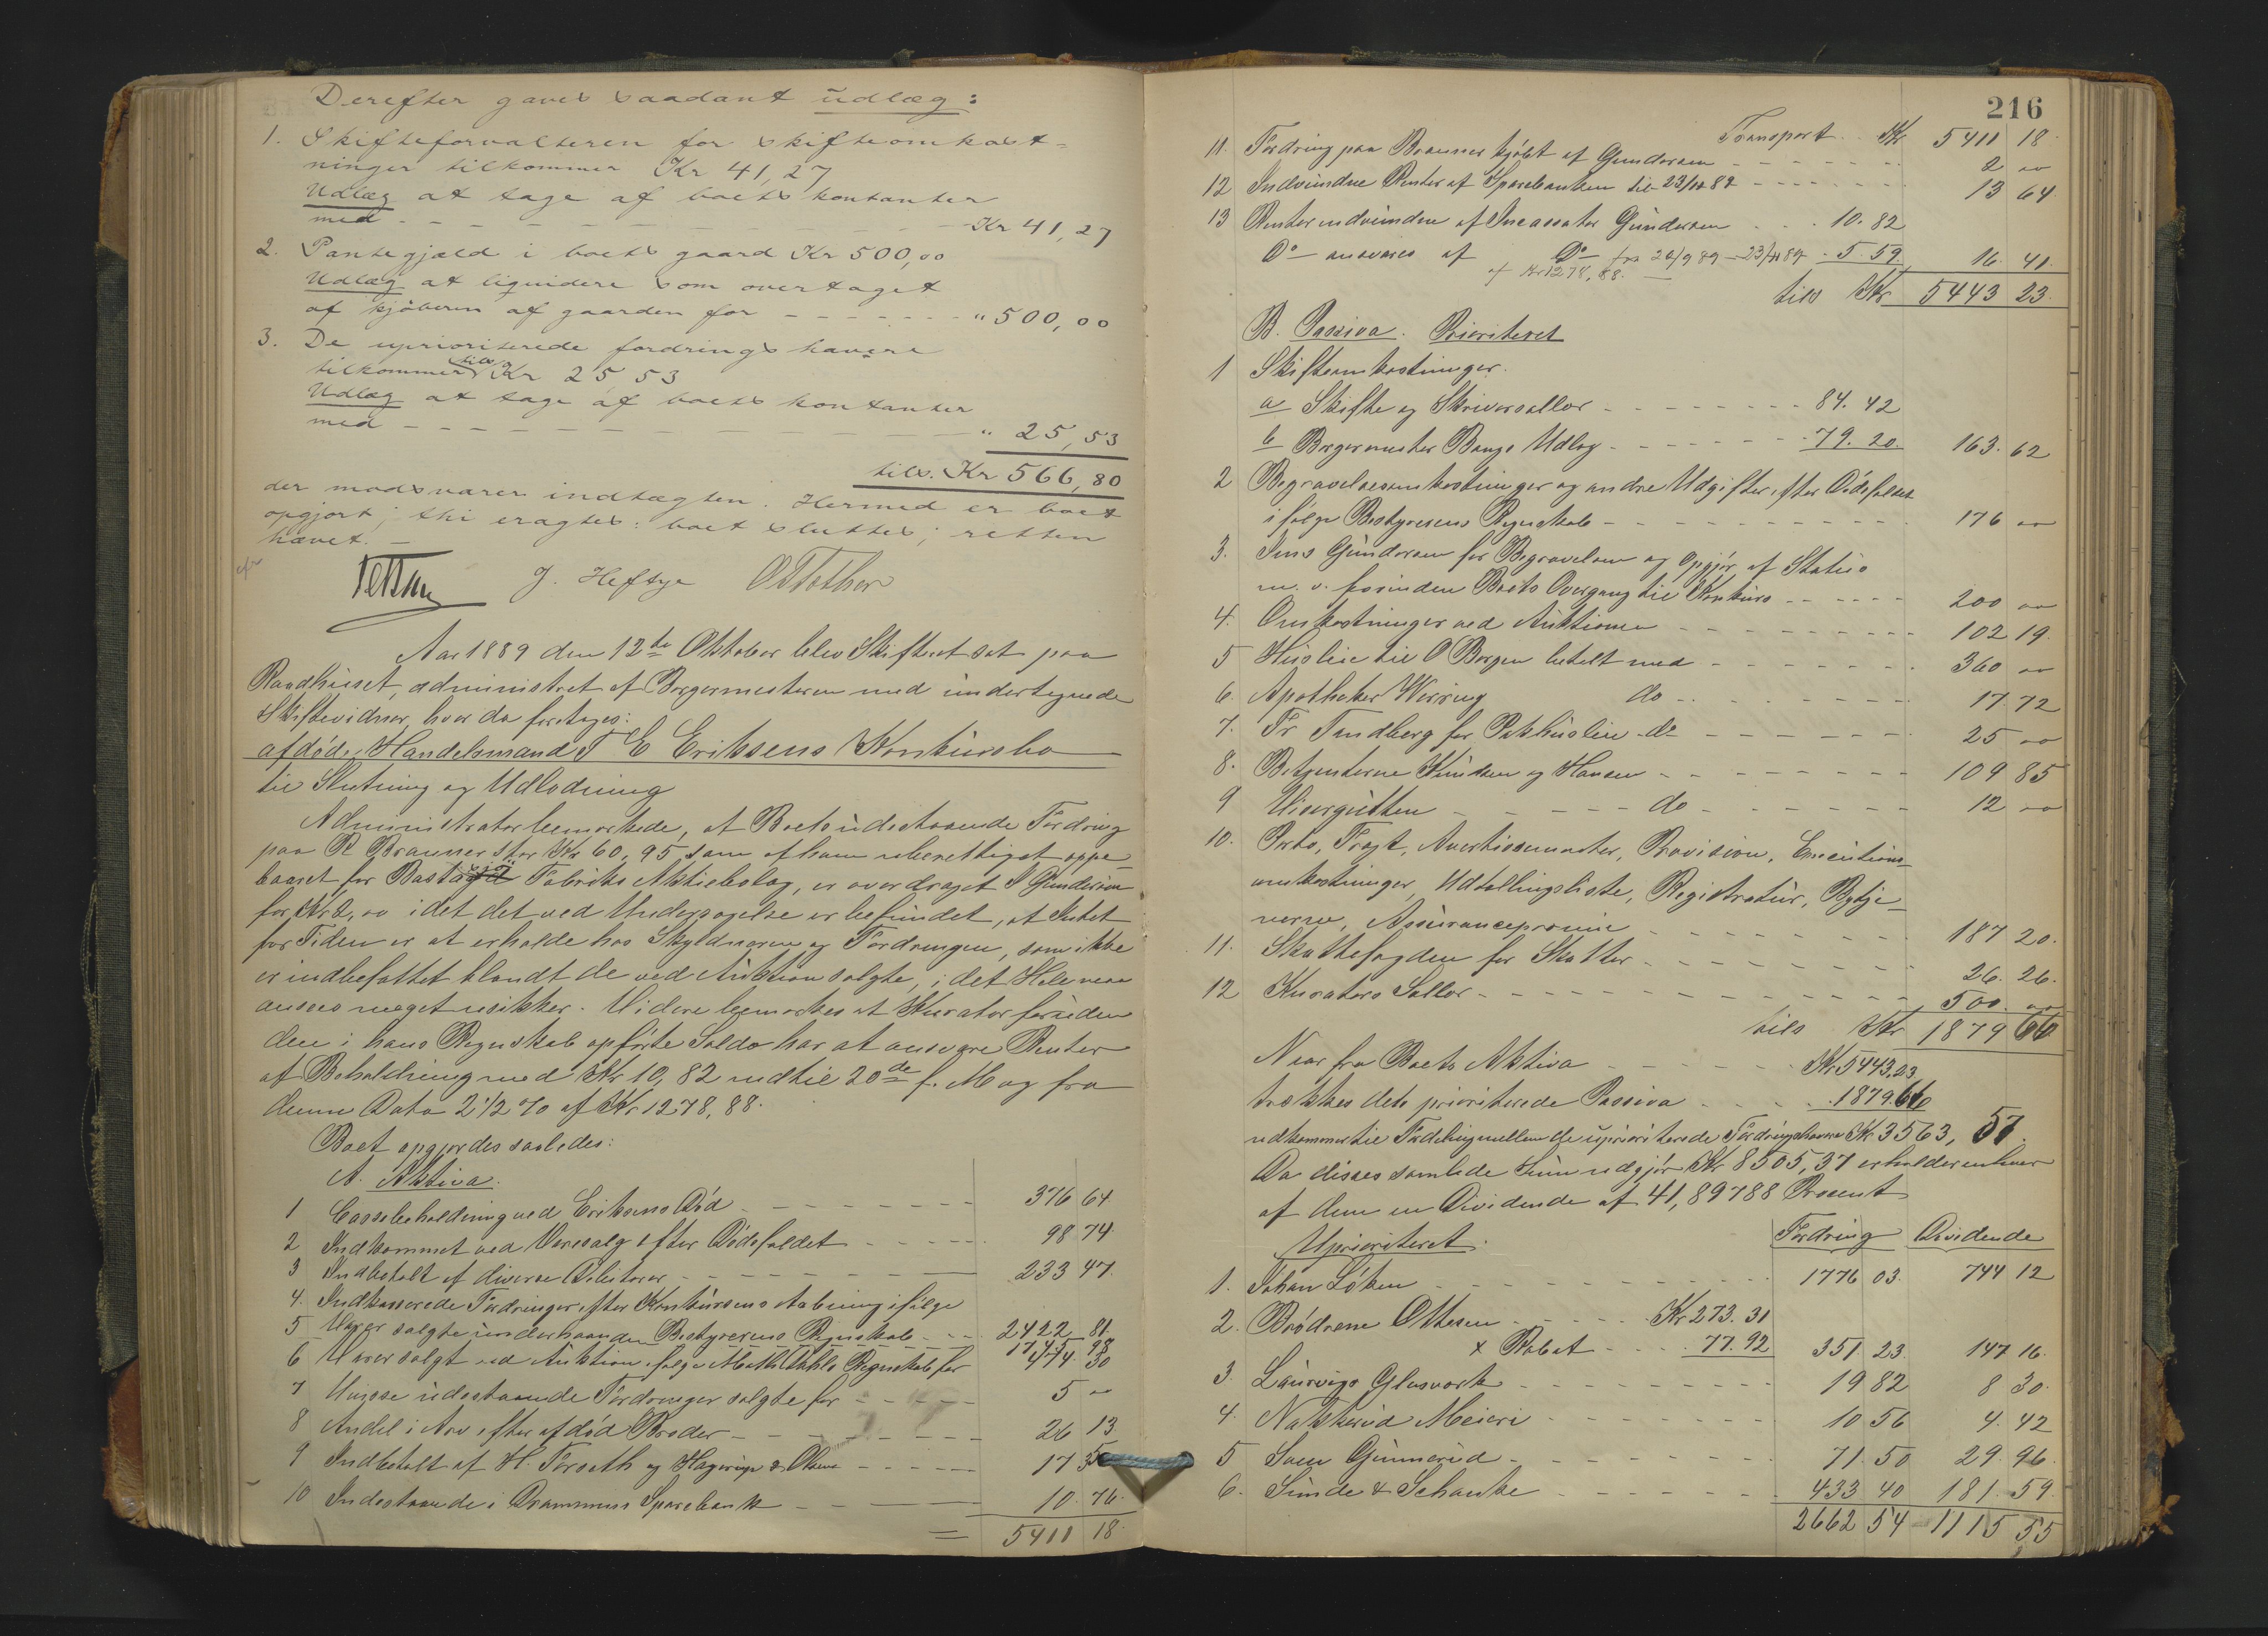 Derefter gaves saadant udlæg:
1. Skifteforvalteren for skifteomkost-
ninger tilkommer Kr 41,27
Udlæg at tage af boets kontanter
med - - - Kr 41,27
2. Pantegjæld i boets gaard Kr 500,00
Udlæg at liquidere som overtaget
af kjøberen af gaarden for - - - " 500,00
3. De uprioriterede fordringshavere
tilkommer tils. Kr 25,53
Udlæg at tage af boets kontanter
med - - - " 25,53
tils. Kr 566,80
der modsvarer indtægten. Hermed er boet
opgjort; thi eragtes: boet sluttes; retten
hævet. -
J. Heftye
Aar 1889 den 12te Oktober blev Skifteret sat paa
Raadhuset, administret af Borgermesteren med undertegnede
Skiftevidner, hvor da foretoges:
afdøde Handelsmand T E Eriksens Konkursbo
til Slutning og Udlodning
Administrator bemærkede, at Boets udestaaende Fordring
paa R Brauner stor Kr 60,95 som af ham uberettiget oppe-
baaret for Fabriks Aktiebolag, er overdraget J Gundersen
for Kr 2,00 idet det ved Undersøgelse er befundet, at Intet
for Tiden er at erholde hos Skyldneren og Fordringen, som ikke
er indbefattet blandt de ved Auktion solgte, i det Hele maa
ansees meget usikker. Videre bemærkes at Kurator foruden
den i hans Regnskab opførte Saldo har at ansvare Renter
af Beholdning med Kr 10,82 indtil 20de f. M og fra
denne Dato 2 1/2 % af Kr 1278,88.
Boet opgjordes saaledes:
A. Aktiva.
1 Cassebeholdning ved Eriksens Død - - - 376 64
2 Indkommet ved Varesalg efter Dødsfaldet - - - 98 74
3 Indbetalt af diverse Debitorer - - - 233 47
4. Indkasserede Fordringer efter Konkursens Aabning ifølge
Bestyrerens Regnskab - - 2422 81.
5 Varer solgte underhaanden 1745 98
6 Varer solgt ved Auktion ifølge Regnskab for 474 30
7 Visse udestaaende Fordringer solgte for - - - 5 00
8 Andel i Arv efter afdød Broder - - - 26 13
9 Indbetalt af H. Forseth og Hagerup & - - - 17 35
10 Indestaaende i Drammens Sparebank - - - 10. 76.
= 5411 18.
216
Transport Kr 5411 18.
11. Fordring paa Brauner kjøbt af Gundersen - - - 2 00
12 Indvundne Renter af Sparebanken til 23/11 89 - - - 13 64
13 Renter indvundne af Incassator Gundersen - - 10. 82
Do ansvares af Do fra 20/9 89 - 23/11 89 - 5. 59 16. 41.
af Kr 1278,88.
tils Kr 5443 23.
B. Passiva. Prioriteret
1 Skifteomkostninger.
a Skifte og Skriversaller - - - 84. 42
b Borgermester Bangs Udlæg - - - 79. 20. 163. 62
2 Begravelsesomkostninger og andre Udgifter efter Dødsfaldet
ifølge Bestyrerens Regnskab - - - 176 00
3. Jens Gundersen for Begravelsen og Opgjør af Status
m. v. forinden Boets Overgang til Konkurs - - - 200 00
4. Omkostninger ved Auktionen - - - 102 19.
5 Husleie til O Borgen betalt med - - - 360 00
6. Apotheker do - - - 17. 72
7. Fr Tandberg for Pakhusleie do - - - 25 00
8. Betjenterne Knudsen og Hansen - - - 109 85
9 Visergutten - - - do - - - 12 00
10. Porto, Fragt, Avertissementer, Provision, Executions-
omkostninger, Udtællingsliste, Registratur, Bytje-
nerne, Assurancepræmie - - - 187 20.
11. Skattefogden for Skatter - - - 26. 26.
12 Kurators Sallær - - - 500. 00
tils Kr 1879 66
Naar fra Boets Aktiva - - - Kr 5443,23
trækkes dets prioriterede Passiva - - - 1879.66
udkommer til Fordeling mellem de uprioriterede Fordringshavere Kr 3563, 57.
Da disses samlede Sum udgjør Kr 8505,37 erholder enhver
af dem en Dividende af 41,89788 Procent
Uprioriteret. Fordring Dividende
1. Johan Løken - - - 1776 03. 744 12
2. Brødrene Ottesen - - - Kr 273. 31
x Rabat - - - 77. 92 351. 23. 147 16.
3. Laurvigs Glasværk - - - 19 82 8 30.
4. Meieri - - - 10 56 4. 42
5 Gunnerud - - - 71. 50 29. 96.
6. Sunde & Schanke - - - 433 40 181. 59.
2662 54 1115 55